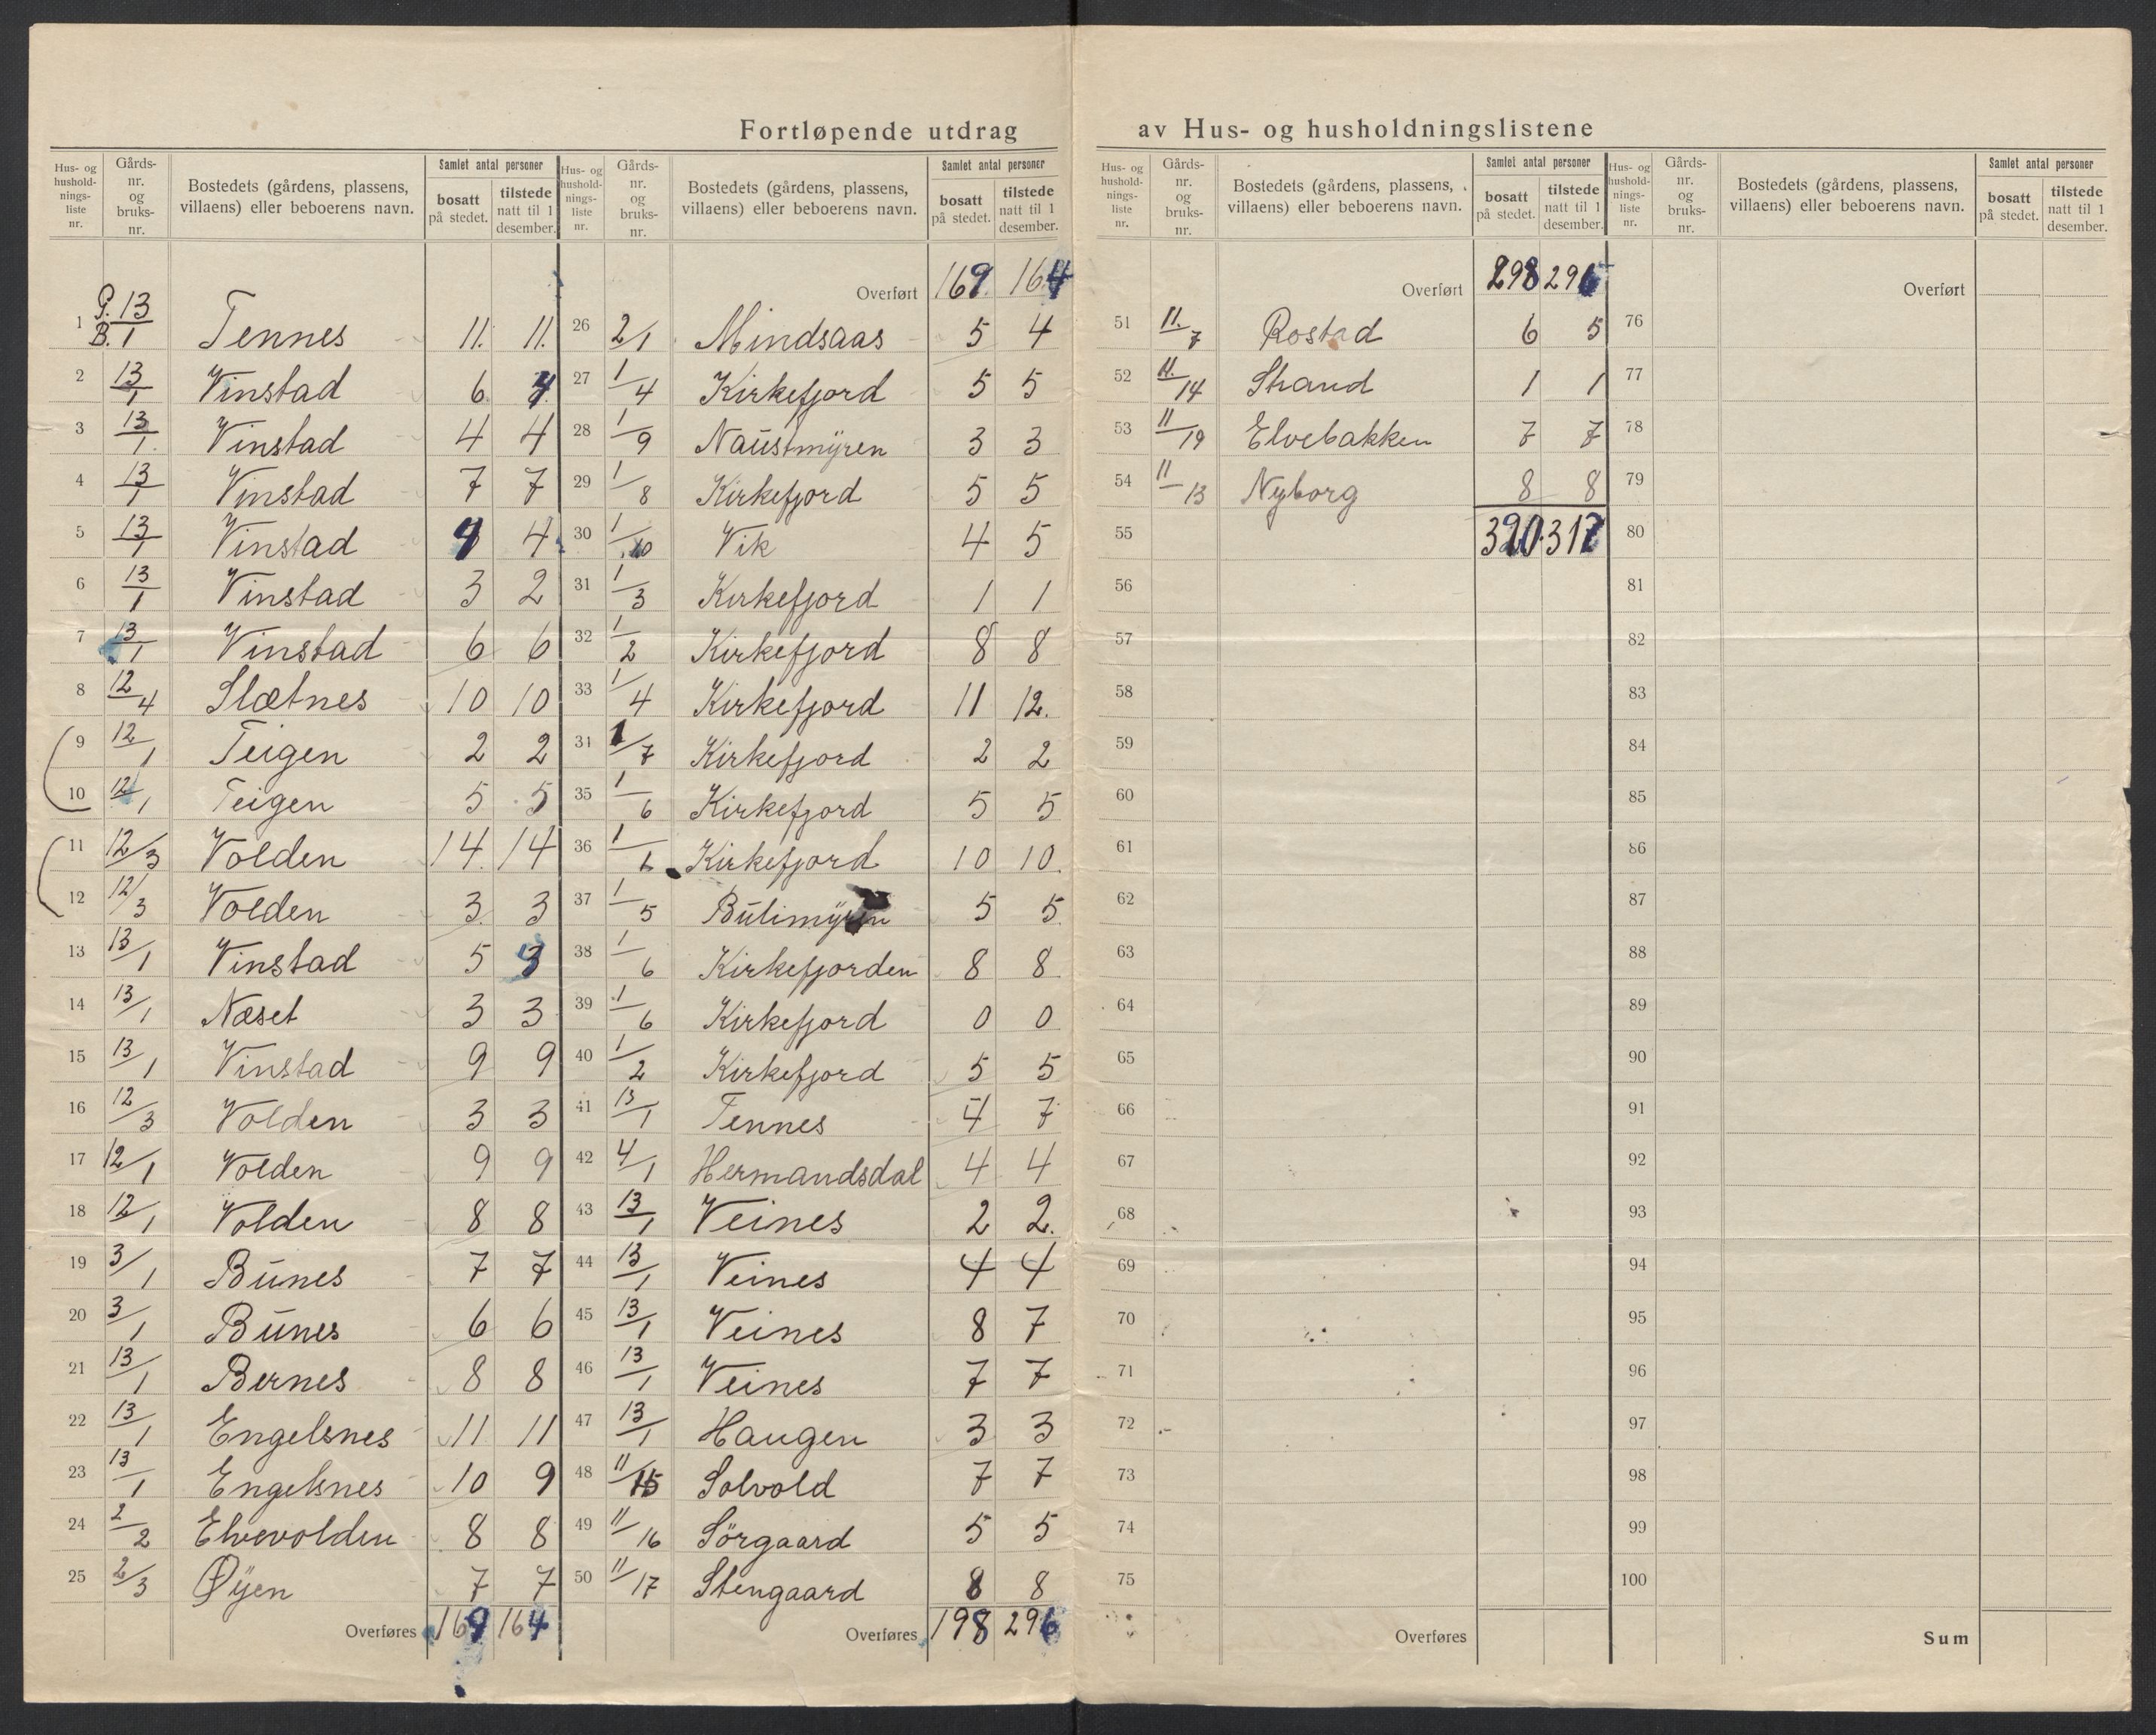 Fortløpende utdrag av Hus- og husholdningslistene
Hus- og hushold-nings-liste nr. | Gårds-nr. og bruks-nr. | Bostedets (gårdens, plassens, villaens) eller beboerens navn. | Samlet antal personer bosatt på stedet. | tilstede natt til 1 desember.
1 | G. 13 / B. 1 | Tennes | 11. | 11.
2 | 13/1 | Vinstad | 6 | 4
3 | 13/1 | Vinstad | 4 | 4
4 | 13/1 | Vinstad | 7 | 7
5 | 13/1 | Vinstad | 4 | 4
6 | 13/1 | Vinstad | 3 | 2
7 | 13/1 | Vinstad | 6 | 6
8 | 12/4 | Slætnes | 10 | 10
9 | 12/1 | Teigen | 2 | 2
10 | 12/1 | Teigen | 5 | 5
11 | 12/3 | Volden | 14 | 14
12 | 12/3 | Volden | 3 | 3
13 | 13/1 | Vinstad | 5 | 3
14 | 13/1 | Næset | 3 | 3
15 | 13/1 | Vinstad | 9 | 9
16 | 12/3 | Volden | 3 | 3
17 | 12/1 | Volden | 9 | 9
18 | 12/1 | Volden | 8 | 8
19 | 3/1 | Bunes | 7 | 7
20 | 3/1 | Bunes | 6 | 6
21 | 13/1 | Bernes | 8 | 8
22 | 13/1 | Engelsnes | 11 | 11
23 | 13/1 | Engelsnes | 10 | 9
24 | 2/2 | Elvevolden | 8 | 8
25 | 2/3 | Øyen | 7 | 7
Overføres | 169 | 164
Hus- og hushold-nings-liste nr. | Gårds-nr. og bruks-nr. | Bostedets (gårdens, plassens, villaens) eller beboerens navn. | Samlet antal personer bosatt på stedet. | tilstede natt til 1 desember.
Overført | 169 | 164
26 | 2/1 | Mindsaas | 5 | 4
27 | 1/4 | Kirkefjord | 5 | 5
28 | 1/9 | Naustmyren | 3 | 3
29 | 1/8 | Kirkefjord | 5 | 5
30 | 1/10 | Vik | 4 | 5
31 | 1/3 | Kirkefjord | 1 | 1
32 | 1/2 | Kirkefjord | 8 | 8
33 | 1/4 | Kirkefjord | 11 | 12.
31 | 1/7 | Kirkefjord | 2 | 2
35 | 1/6 | Kirkefjord | 5 | 5
36 | 1/6 | Kirkefjord | 10 | 10.
37 | 1/5 | Bulimyren | 5 | 5
38 | 1/6 | Kirkefjorden | 8 | 8
39 | 1/6 | Kirkefjord | 0 | 0
40 | 1/2 | Kirkefjord | 5 | 5
41 | 13/1 | Tennes | 4 | 7
42 | 4/1 | Hermandsdal | 4 | 4
43 | 13/1 | Veines | 2 | 2.
44 | 13/1 | Veines | 4 | 4
45 | 13/1 | Veines | 8 | 7
46 | 13/1 | Veines | 7 | 7
47 | 13/1 | Haugen | 3 | 3
48 | 11/15 | Solvold | 7 | 7
49 | 11/16 | Sörgaard | 5 | 5
50 | 11/17 | Stengaard | 8 | 8
Overføres | 198 | 296
Hus- og hushold-nings-liste nr. | Gårds-nr. og bruks-nr. | Bostedets (gårdens, plassens, villaens) eller beboerens navn. | Samlet antal personer bosatt på stedet. | tilstede natt til 1 desember.
Overført | 298 | 296
51 | 11/7 | Rostad | 6 | 5
52 | 11/14 | Strand | 1 | 1
53 | 11/19 | Elvebakken | 7 | 7
54 | 11/13 | Nyborg | 8 | 8
55 | 320 | 317
56
57
58
59
60
61
62
63
64
65
66
67
68
69
70
71
72
73
74
75
Overføres
Hus- og hushold-nings-liste nr. | Gårds-nr. og bruks-nr. | Bostedets (gårdens, plassens, villaens) eller beboerens navn. | Samlet antal personer bosatt på stedet. | tilstede natt til 1 desember.
Overført
76
77
78
79
80
81
82
83
84
85
86
87
88
89
90
91
92
93
94
95
96
97
98
99
100
Sum